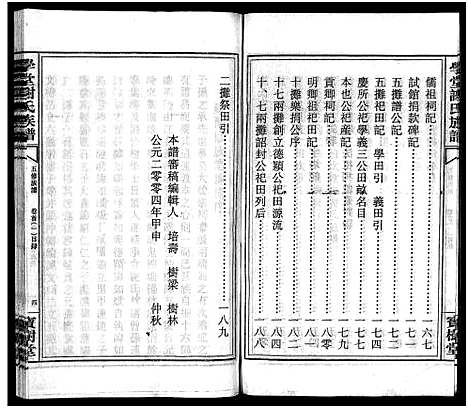 學堂謝氏族譜
儒祖祠記 六七
試館捐款碑記 七一
五攤譜公記 七二
五攤祀田記 學田引 義田引 七四
慶所公祀學義三公田畝名目 七五
本也公祀產記 七九
貢卿祀田記 八〇
明卿祖祀田記 八一
十攤樂捐公序 八二
十七兩攤創立德公祀田源流 八四
十、七兩攤詔封公祀田列后 八八
寶樹堂
學堂謝氏族譜
二攤祭田引 八九
本譜審稿編輯人 培壽 樹梁 樹林
公元二〇〇四年甲申 仲秋
五修族譜 卷首(一)目錄
四
寶樹堂